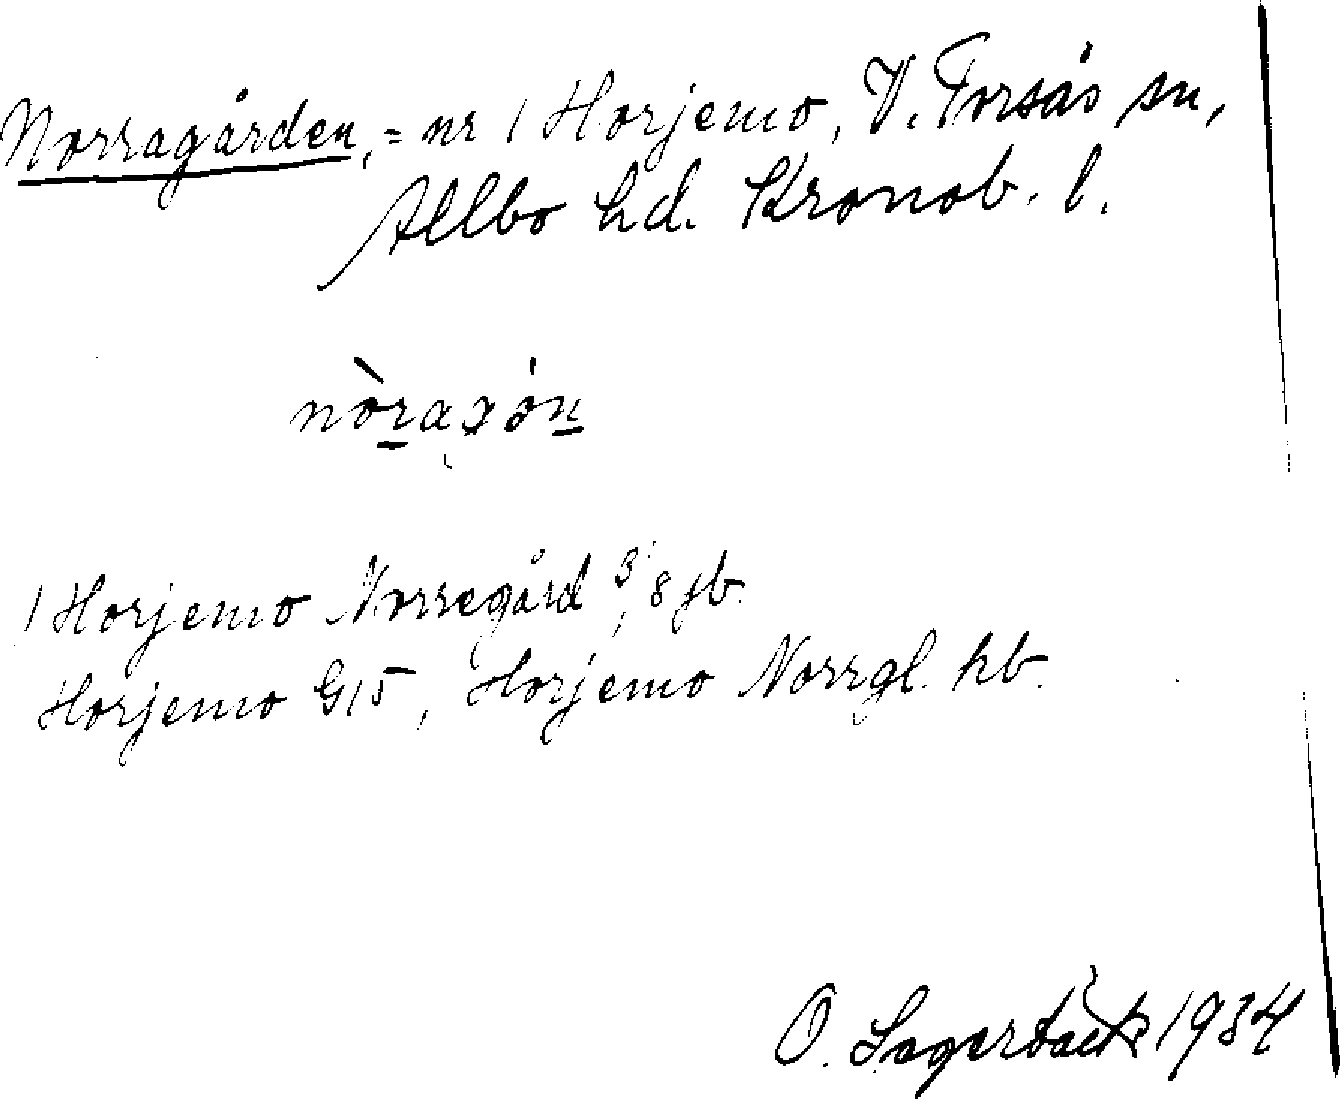 Norragården, = nr 1 Horjemo, V. Torsås sn,
Allbo hd. Kronob. l.
nòraxón
1 Horjemo Norregård 3/8 jb.
Horjemo G15, Horjemo Norrgl. hb.
O. Lagerbäck 1934